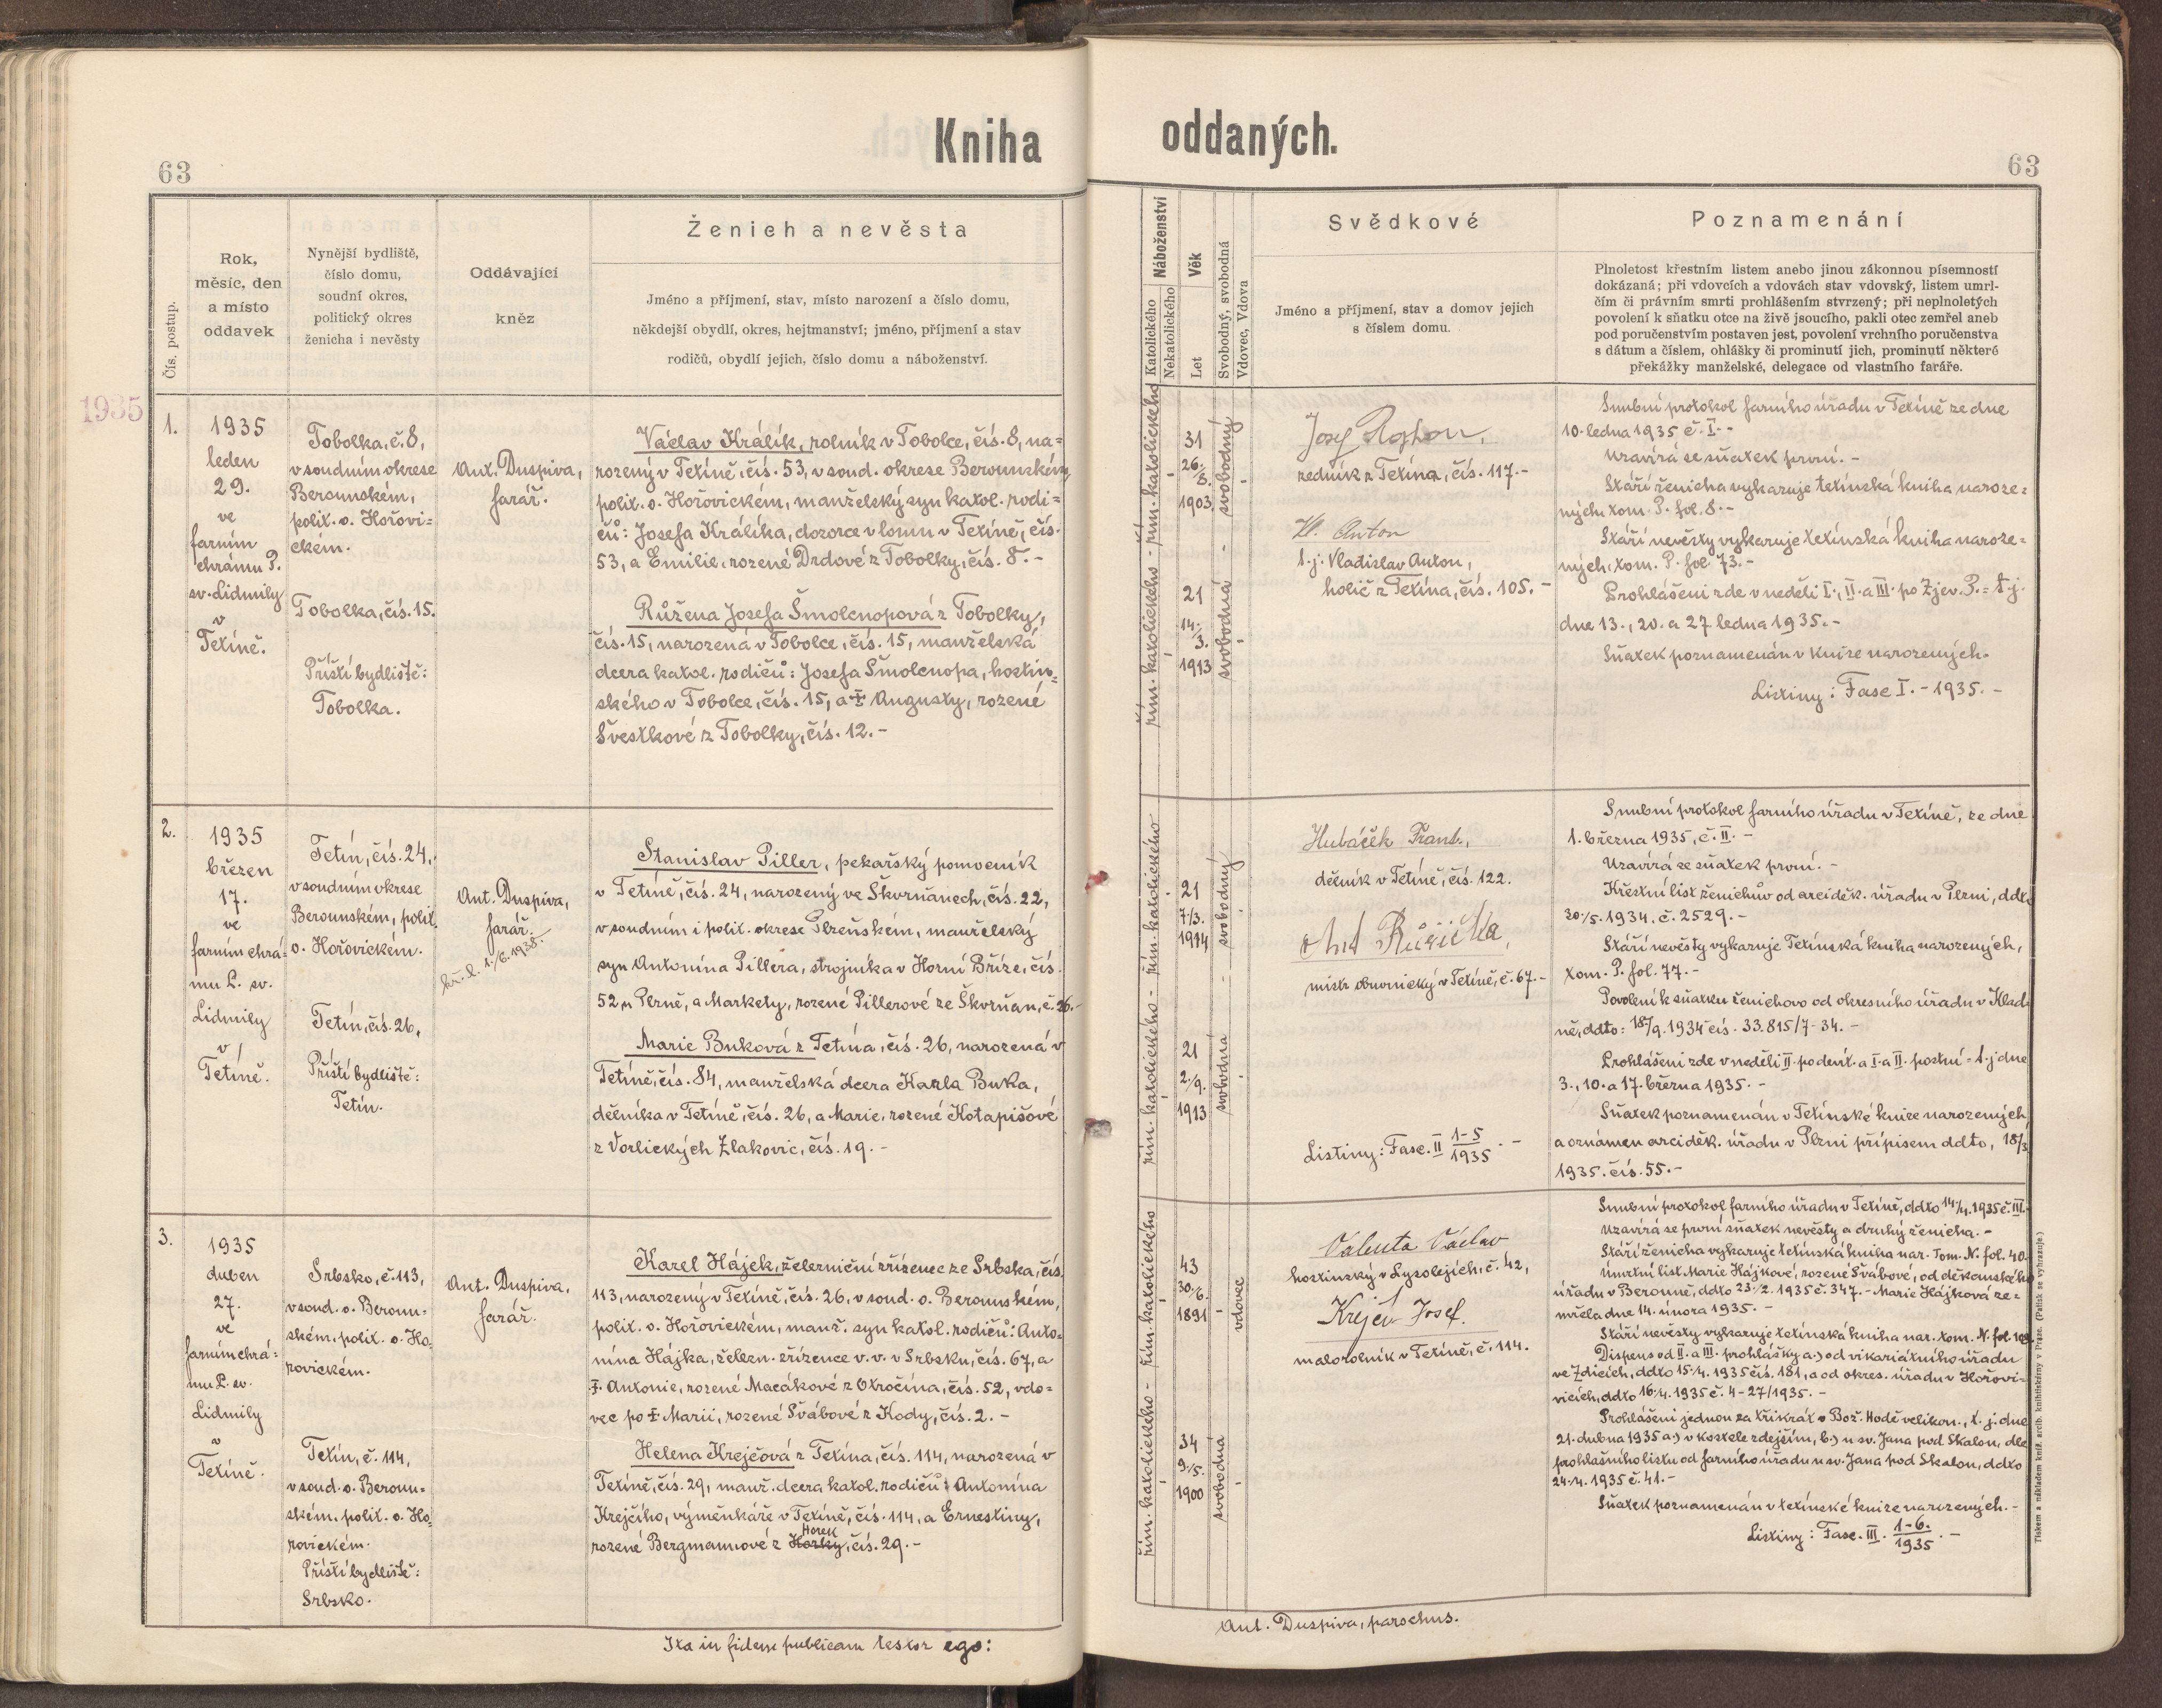 Kniha oddaných.
63
63
Čís. postup.
Rok,
měsíc, den
a místo
oddavek
Nynější bydliště,
číslo domu,
soudní okres,
politický okres
ženicha i nevěsty
Oddávající
kněz
Ženich a nevěsta
Jméno a příjmení, stav, místo narození a číslo domu,
někdejší obydlí, okres, hejtmanství; jméno, příjmení a stav
rodičů, obydlí jejich, číslo domu a náboženství.
Náboženství
Katolického
Nekatolického
Věk
Let
Svobodný, svobodná
Vdovec, Vdova
Svědkové
Jméno a příjmení, stav a domov jejich
s číslem domu.
Poznamenání
Plnoletost křestním listem anebo jinou zákonnou písemností
dokázaná; při vdovcích a vdovách stav vdovský, listem umrl-
čím či právním smrti prohlášením stvrzený; při neplnoletých
povolení k sňatku otce na živě jsoucího, pakli otec zemřel aneb
pod poručenstvím postaven jest, povolení vrchního poručenstva
s dátum a číslem, ohlášky či prominutí jich, prominutí některé
překážky manželské, delegace od vlastního faráře.
1935
1.
1935
leden
29.
ve
farním
chrámu P.
sv. Lidmily
v
Tetíně.
Tobolka, č. 8,
v soudním okrese
Berounském,
polit. o. Hořovi=
ckém.
Tobolka, čís. 15.
Příští bydliště:
Tobolka.
Ant. Duspiva,
farář.
Václav Králík, rolník v Tobolce, čís. 8, na=
rozený v Tetíně, čís. 53, v soud. okrese Berounském,
polit. o. Hořovickém, manželský syn katol. rodi=
čů: Josefa Králíka, dozorce v lomu v Tetíně, čís.
53, a Emilie, rozené Drdové z Tobolky, čís. 8. -
Růžena Josefa Šmolcnopová z Tobolky,
čís. 15, narozená v Tobolce, čís. 15, manželská
dcera katol. rodičů: Josefa Šmolcnopa, hostin=
ského v Tobolce, čís. 15, a † Augusty, rozené
Švestkové z Tobolky, čís. 12. -
řím. katolického - řím. katolického
31
26./8.
1903
svobodný
21
14./3.
1913
svobodná
řezník z Tetína, čís. 117. -
Vl. Anton
t. j. Vladislav Anton,
holič z Tetína, čís. 105. -
Snubní protokol farního úřadu v Tetíně ze dne
10. ledna 1935, č. I. -
Uzavírá se sňatek první. -
Stáří ženicha vykazuje tetínská kniha naroze=
ných, tom. P. fol. 8. -
Stáří nevěsty vykazuje tetínská kniha naroze=
ných, tom. P. fol. 73. -
Prohlášeni zde v neděli I., II. a III. po Zjev. P. = t. j.
dne 13., 20. a 27. ledna 1935. -
Sňatek poznamenán v knize narozených.
Listiny: Fasc. I. - 1935. -
2.
1935
březen
17.
ve
farním chrá=
mu P. sv.
Lidmily
v
Tetíně.
Tetín, čís. 24,
v soudním okrese
Berounském, polit.
o. Hořovickém.
Tetín, čís. 26,
Příští bydliště:
Tetín.
Ant. Duspiva,
farář.
kř. l. 1./6. 1938.
Stanislav Piller, pekařský pomocník
v Tetíně, čís. 24, narozený ve Škvrňanech, čís. 22,
v soudním i polit. okrese Plzeňském, manželský
syn Antonína Pillera, strojníka v Horní Bříze, čís.
52 u Plzně, a Markety, rozené Pillerové ze Škvrňan, č. 26. -
Marie Buková z Tetína, čís. 26, narozená v
Tetíně, čís. 84, manželská dcera Karla Buka,
dělníka v Tetíně, čís. 26, a Marie, rozené Kotapišové
z Vorlických Zlakovic, čís. 19. -
řím. katolického - řím. katolického
21
7./3.
1914
svobodný
21
2./9.
1913
svobodná
Hubáček Frant.,
dělník v Tetíně, čís. 122.
Ant Růžička,
mistr obuvnický v Tetíně, č. 67. -
Listiny: Fasc. II 1-5/1935. -
Snubní protokol farního úřadu v Tetíně, ze dne
1. března 1935, č. II. -
Uzavírá se sňatek první. -
Křestní list ženichův od arciděk. úřadu v Plzni, ddto
30./5. 1934, č. 2529. -
Stáří nevěsty vykazuje Tetínská kniha narozených,
tom. P. fol. 77. -
Povolení k sňatku ženichovo od okresního úřadu v Klad=
ně, ddto: 18/9. 1934 čís. 33.815/7-34. -
Prohlášeni zde v neděli II. po devít. a I. a II. postní = t. j. dne
3., 10. a 17. března 1935. -
Sňatek poznamenán v Tetínské knize narozených
a oznámen arciděk. úřadu v Plzni přípisem ddto, 18/3.
1935. čís. 55. -
3.
1935
duben
27.
ve
farním chrá=
mu P. sv.
Lidmily
v
Tetíně.
Srbsko, č. 113,
v soud. o. Beroun=
ském, polit. o. Ho=
řovickém.
Tetín, č. 114,
v soud. o. Beroun=
ském, polit. o. Ho=
řovickém.
Příští bydliště:
Srbsko.
Ant. Duspiva,
farář.
Karel Hájek, železniční zřízenec ze Srbska, čís.
113, narozený v Tetíně, čís. 26, v soud. o. Berounském,
polit. o. Hořovickém, manž. syn katol. rodičů: Anto=
nína Hájka, železn. zřízence v. v. v Srbsku, čís. 67, a
†. Antonie, rozené Macákové z Otročína, čís. 52, vdo=
vec po † Marii, rozené Švábové z Kody, čís. 2. -
Helena Krejčová z Tetína, čís. 114, narozená v
Tetíně, čís. 29, manž. dcera katol. rodičů: Antonína
Krejčího, výměnkáře v Tetíně, čís. 114, a Ernestiny,
Horek
rozené Bergmannové z Horky, čís. 29. -
řím. katolického - řím. katolického
43
30./6.
1891
vdovec
34
9./5.
1900
svobodná
Valenta Václav
hostinský v Lysolejích, č. 42,
Krejčí Josef.
malorolník v Tetíně, č. 114.
Snubní protokol farního úřadu v Tetíně, ddto 14/4. 1935 č. III.
Uzavírá se první sňatek nevěsty a druhý ženicha. -
Stáří ženicha vykazuje tetínská kniha nar. Tom. N. fol. 40.
Úmrtní list Marie Hájkové, rozené Švábové, od děkanského
úřadu v Berouně, ddto 23./2. 1935 č. 347. - Marie Hájková ze=
mřela dne 14. února 1935. -
Stáří nevěsty vykazuje tetínská kniha nar. tom. N. fol.
Dispens od II. a III. prohlášky a.) od vikariátního úřadu
ve Zdicích, ddto 15./4. 1935 čís. 181, a od okres. úřadu v Hořovi=
vicích, ddto 16./4. 1935 č. 4-27/1935. -
Prohlášeni jednou za třikrát o Bož. Hodě velikon., t. j. dne
21. dubna 1935 a.) v kostele zdejším, b.) u sv. Jana pod Skalou, dle
prohlášního listu od farního úřadu u sv. Jana pod Skalou, ddto
24./4. 1935 č. 41. -
Sňatek poznamenán v tetínské knize narozených. -
Listiny: Fasc. III. 1-6./1935. -
Tiskem a nákladem kníž. arcib. knihtiskárny v Praze. (Patisk se vyhrazuje.)
Ita in fidem publicam testor ego:
Ant. Duspiva, parochus.